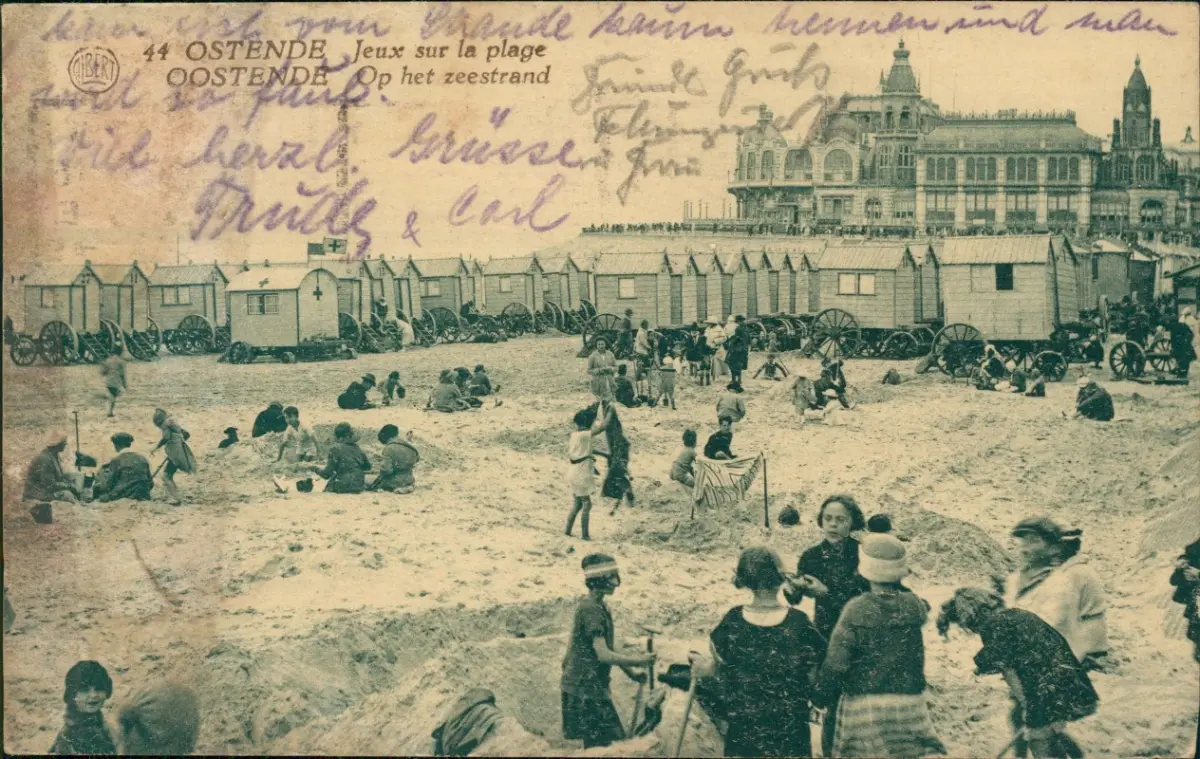 kann sich vom Strande kaum trennen und man
44 OSTENDE Jeux sur la plage
OOSTENDE Op het zeestrand
wird so faul.
Viel herzl. Grüsse
Trudy & Carl
Gruß
Frau
ALBERT